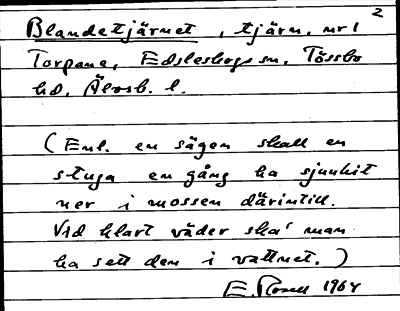 2
Blandetjärnet, tjärn, nr 1
Torpane, Edsleskogs sn. Tössbo
hd. Älvsb. l.
(Enl. en sägen skall en
stuga en gång ha sjunkit
ner i mossen därintill.
Vid klart väder ska' man
ha sett den i vattnet.)
E. Rosell 1964